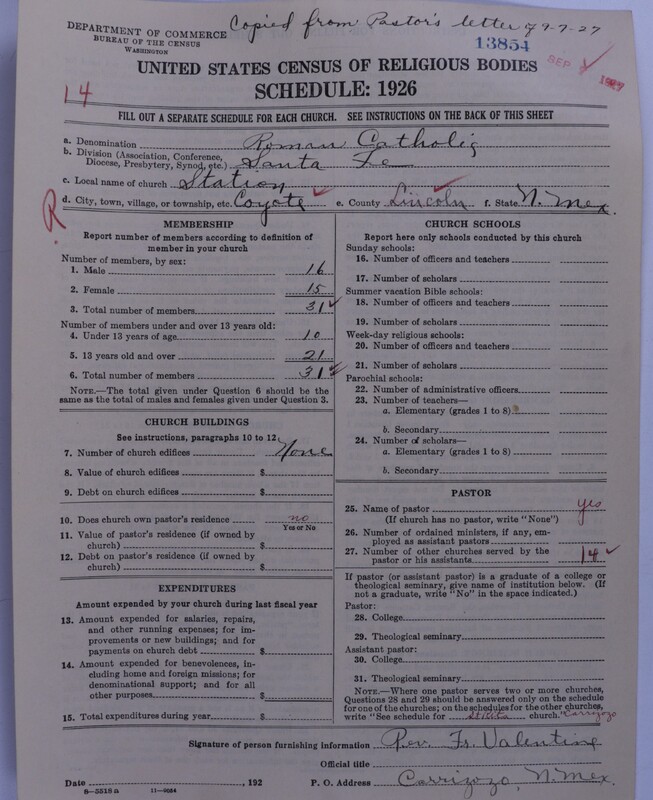 Copied from Pastor's letter of 9-7-27
DEPARTMENT OF COMMERCE
BUREAU OF THE CENSUS
WASHINGTON
13854
SEP 1927
UNITED STATES CENSUS OF RELIGIOUS BODIES
SCHEDULE: 1926
14
FILL OUT A SEPARATE SCHEDULE FOR EACH CHURCH. SEE INSTRUCTIONS ON THE BACK OF THIS SHEET
a. Denomination Roman Catholic
b. Division (Association, Conference,
Diocese, Presbytery, Synod, etc.) Santa Fe
c. Local name of church Station
d. City, town, village, or township, etc. Coyote e. County Lincoln f. State N. Mex.
R
MEMBERSHIP
Report number of members according to definition of
member in your church
Number of members, by sex:
1. Male 16
2. Female 15
3. Total number of members 31
Number of members under and over 13 years old:
4. Under 13 years of age 10
5. 13 years old and over 21
6. Total number of members 31
NOTE.—The total given under Question 6 should be
same as the total of males and females given under Question 3.
CHURCH BUILDINGS
See instructions, paragraphs 10 to 12
7. Number of church edifices None
8. Value of church edifices $
9. Debt on church edifices $
10. Does church own pastor's residence no
Yes or No
11. Value of pastor's residence (if owned by
church) $
12. Debt on pastor's residence (if owned by
church) $
EXPENDITURES
Amount expended by your church during last fiscal year
13. Amount expended for salaries, repairs,
and other running expenses; for im-
provements or new buildings; and for
payments on church debt $
14. Amount expended for benevolences, in-
cluding home and foreign missions; for
denominational support; and for all
other purposes $
15. Total expenditures during year $
CHURCH SCHOOLS
Report here only schools conducted by this church
Sunday schools:
16. Number of officers and teachers
17. Number of scholars
Summer vacation Bible schools:
18. Number of officers and teachers
19. Number of scholars
Week-day religious schools:
20. Number of officers and teachers
21. Number of scholars
Parochial schools:
22. Number of administrative officers
23. Number of teachers—
a. Elementary (grades 1 to 8)
b. Secondary
24. Number of scholars—
a. Elementary (grades 1 to 8)
b. Secondary
PASTOR
25. Name of pastor yes
(If church has no pastor, write "None")
26. Number of ordained ministers, if any, em-
ployed as assistant pastors
27. Number of other churches served by the
pastor or his assistants 14
If pastor (or assistant pastor) is a graduate of a college or
theological seminary, give name of institution below. (If
not a graduate, write "No" in the space indicated.)
Pastor:
28. College
29. Theological seminary
Assistant pastor:
30. College
31. Theological seminary
NOTE.—Where one pastor serves two or more churches,
Questions 28 and 29 should be answered only on the schedule
for one of the churches; on the schedules for the other churches,
write "See schedule for church." Carrizozo
Signature of person furnishing information Rev. Fr. Valentine
Official title
Date , 192 P. O. Address Carrizozo, N. Mex.
8-5518a 11-9044